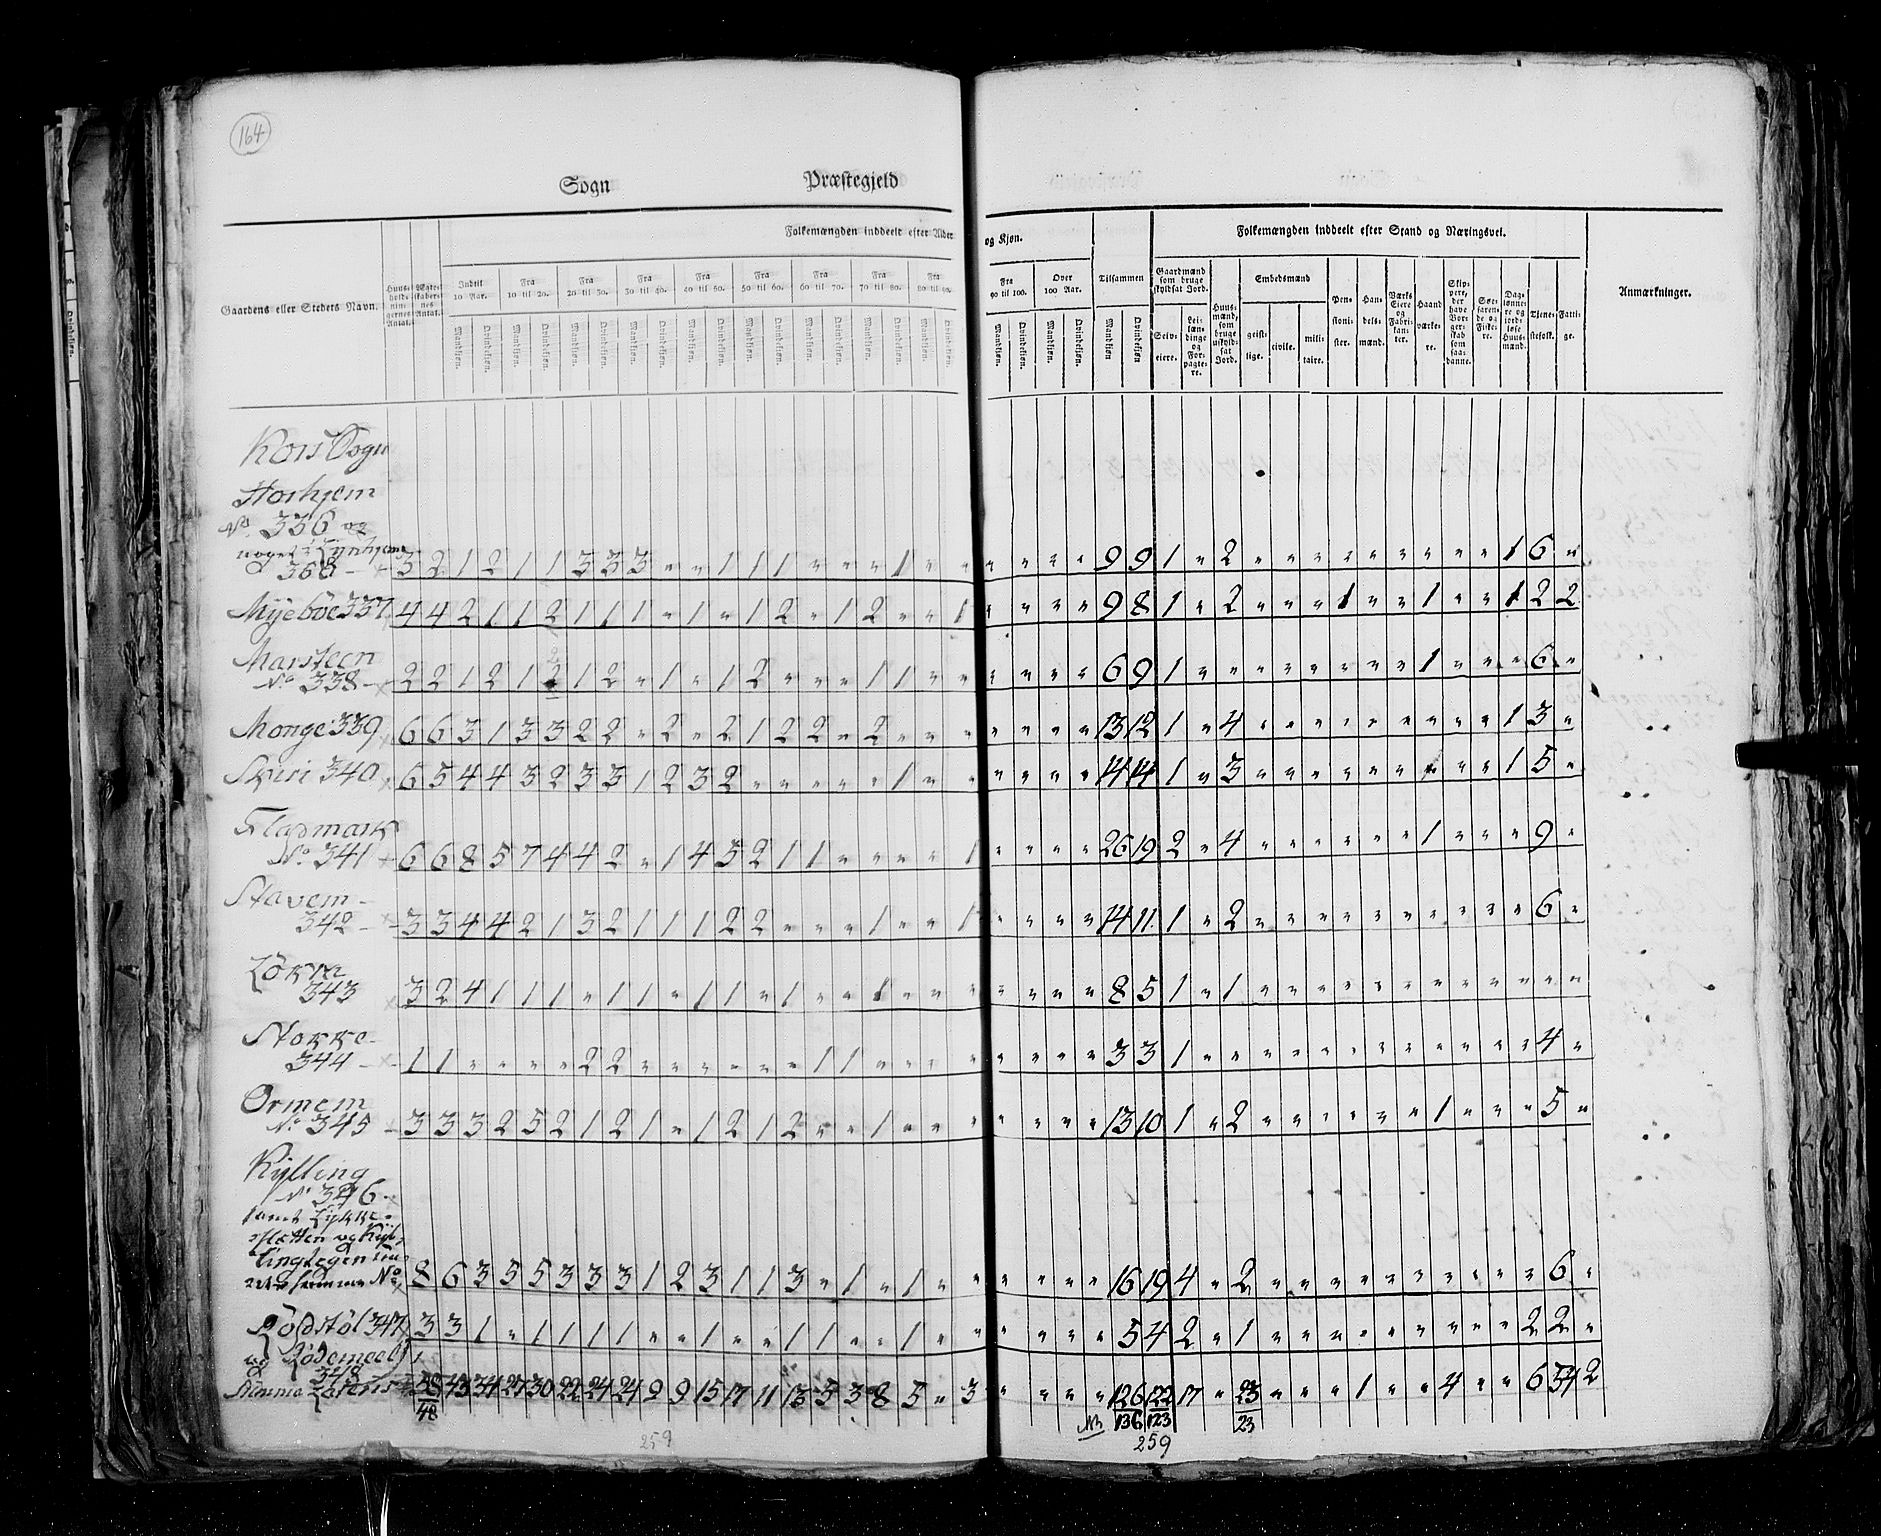 164
Sogn Præstegjeld
Folkemængden inddeelt efter Alder og Kjøn.
Folkemængden inddeelt efter Stand og Næringsvei.
Gaardens eller Stedets Navn.
Indtil 10 Aar. Fra 10 til 20. Fra 20 til 30. Fra 30 til 40. Fra 40 til 50. Fra 50 til 60. Fra 60 til 70. Fra 70 til 80. Fra 80 til 90. Fra 90 til 100. Over 100 Aar. Tilsammen
Mandkjøn. Qvindekjøn.
Gaardmænd som bruge skyldsat Jord. Embedsmænd
Selveiere. Leilændinge og Forpagtere. Huusmænd, som bruge uskyldsat Jord. geistlige. civile. militaire. Pensionister. Handelsmænd. Værks Eiere og Fabrikanter. Haandværkere. Skippere, der have Borgerskab som saadanne. Søefarende og Fiskere. Daglønnere og jordløse Huusmænd. Tjenestefolk. Fattige.
Anmærkninger.
Kors Sogn
Horhjem
No. 336 og
noget i Lynhjem
366 3 2 1 2 1 1 3 3 3 " " 1 1 1 " " " 1 " " " " " " 9 9 1 " 2 " " " " " " " " " 1 6 "
Myeböe 337 4 4 2 1 1 2 1 1 1 " 1 " 1 2 " 1 2 " " 1 " " " " 9 8 1 " 2 " " " 1 " " 1 " " 1 2 2
Marsteen
No 338 2 2 1 2 1 2 1 2 " 1 " 1 2 " " " 1 1 " " " " " " 6 9 1 " " " " " " " " 1 " " " 6 "
Monge 339 6 6 3 1 3 3 2 2 " 2 " 2 1 2 2 " 2 " " " " " " " 13 12 1 " 4 " " " " " " " " " 1 3 "
Skiri 340 6 5 4 4 3 2 3 3 1 2 3 2 " " " " " 1 " " " " " " 14 14 1 " 3 " " " " " " " " " 1 5 "
Fladmark
No 341 6 6 8 5 7 4 4 2 " 1 4 5 2 1 1 " " " " 1 " " " " 26 19 2 " 4 " " " " " " 1 " " " 9 "
Stavem
342 3 3 4 4 2 1 3 2 1 1 1 2 2 " " " 1 " " 1 " " " " 14 11 1 " 2 " " " " " " " " " " 6 "
343 3 2 4 1 1 1 " 1 1 " 1 1 " 1 " " 1 " " " " " " " 8 5 1 " 1 " " " " " " " " " " " "
Stokke
344 1 1 " " " " 2 2 " " " " " " 1 1 " " " " " " " " 3 3 1 " " " " " " " " " " " " 4 "
Ormem
No 345 3 3 3 2 5 2 1 2 1 " 1 2 1 2 " " 1 " " " " " " " 13 10 1 " 2 " " " " " " 1 " " " 5 "
Kylling
No 346
samt Lykke
sletten og Kyl
lingtegen
No 8 6 3 5 5 3 3 3 1 2 3 1 1 3 " 1 " 1 " " " " " " 16 19 4 " 2 " " " " " " " " " " 6 "
Rödstöl 347 3 3 1 " 1 1 1 1 " " 1 " " 1 1 " " 1 " " " " " " 5 4 2 " 1 " " " " " " " " " 2 2 "
og Rödemoel
348
Summa Lateris 43 34 27 30 22 24 24 9 9 15 17 11 13 5 3 8 5 " 3 " " " " 126 122 17 " 23 " " " 1 " " 4 " " 6 54 2
48 136 123 23
259 259